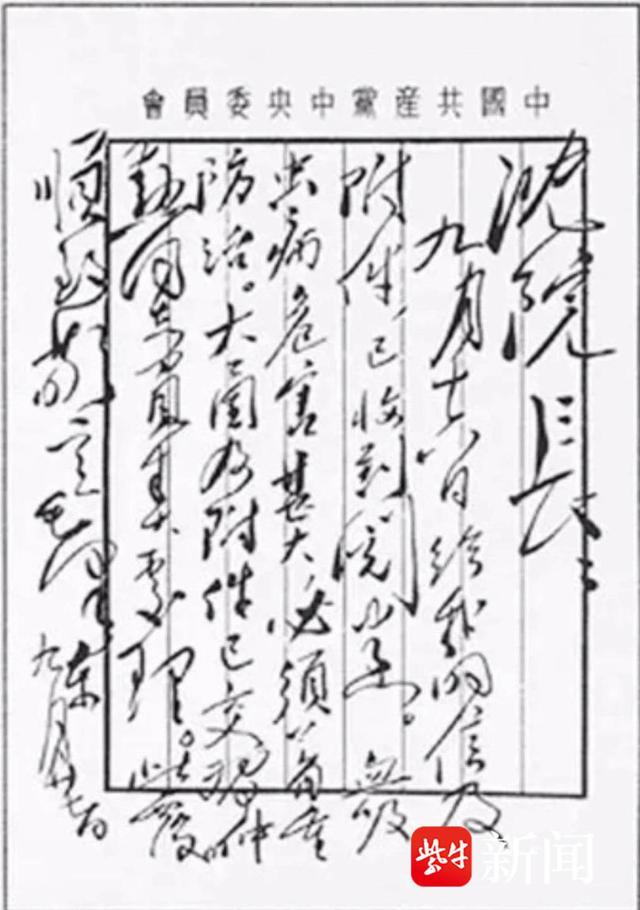 中國共産黨中央委員會
沈院長：
九月十六日給我的信及
附件，已收到閱悉。血吸
虫病危害甚大，必須着重
防治。大函及附件已交習仲
勳同志負責處理。此覆
順致敬意 毛澤東 九月廿七日
紫牛新闻